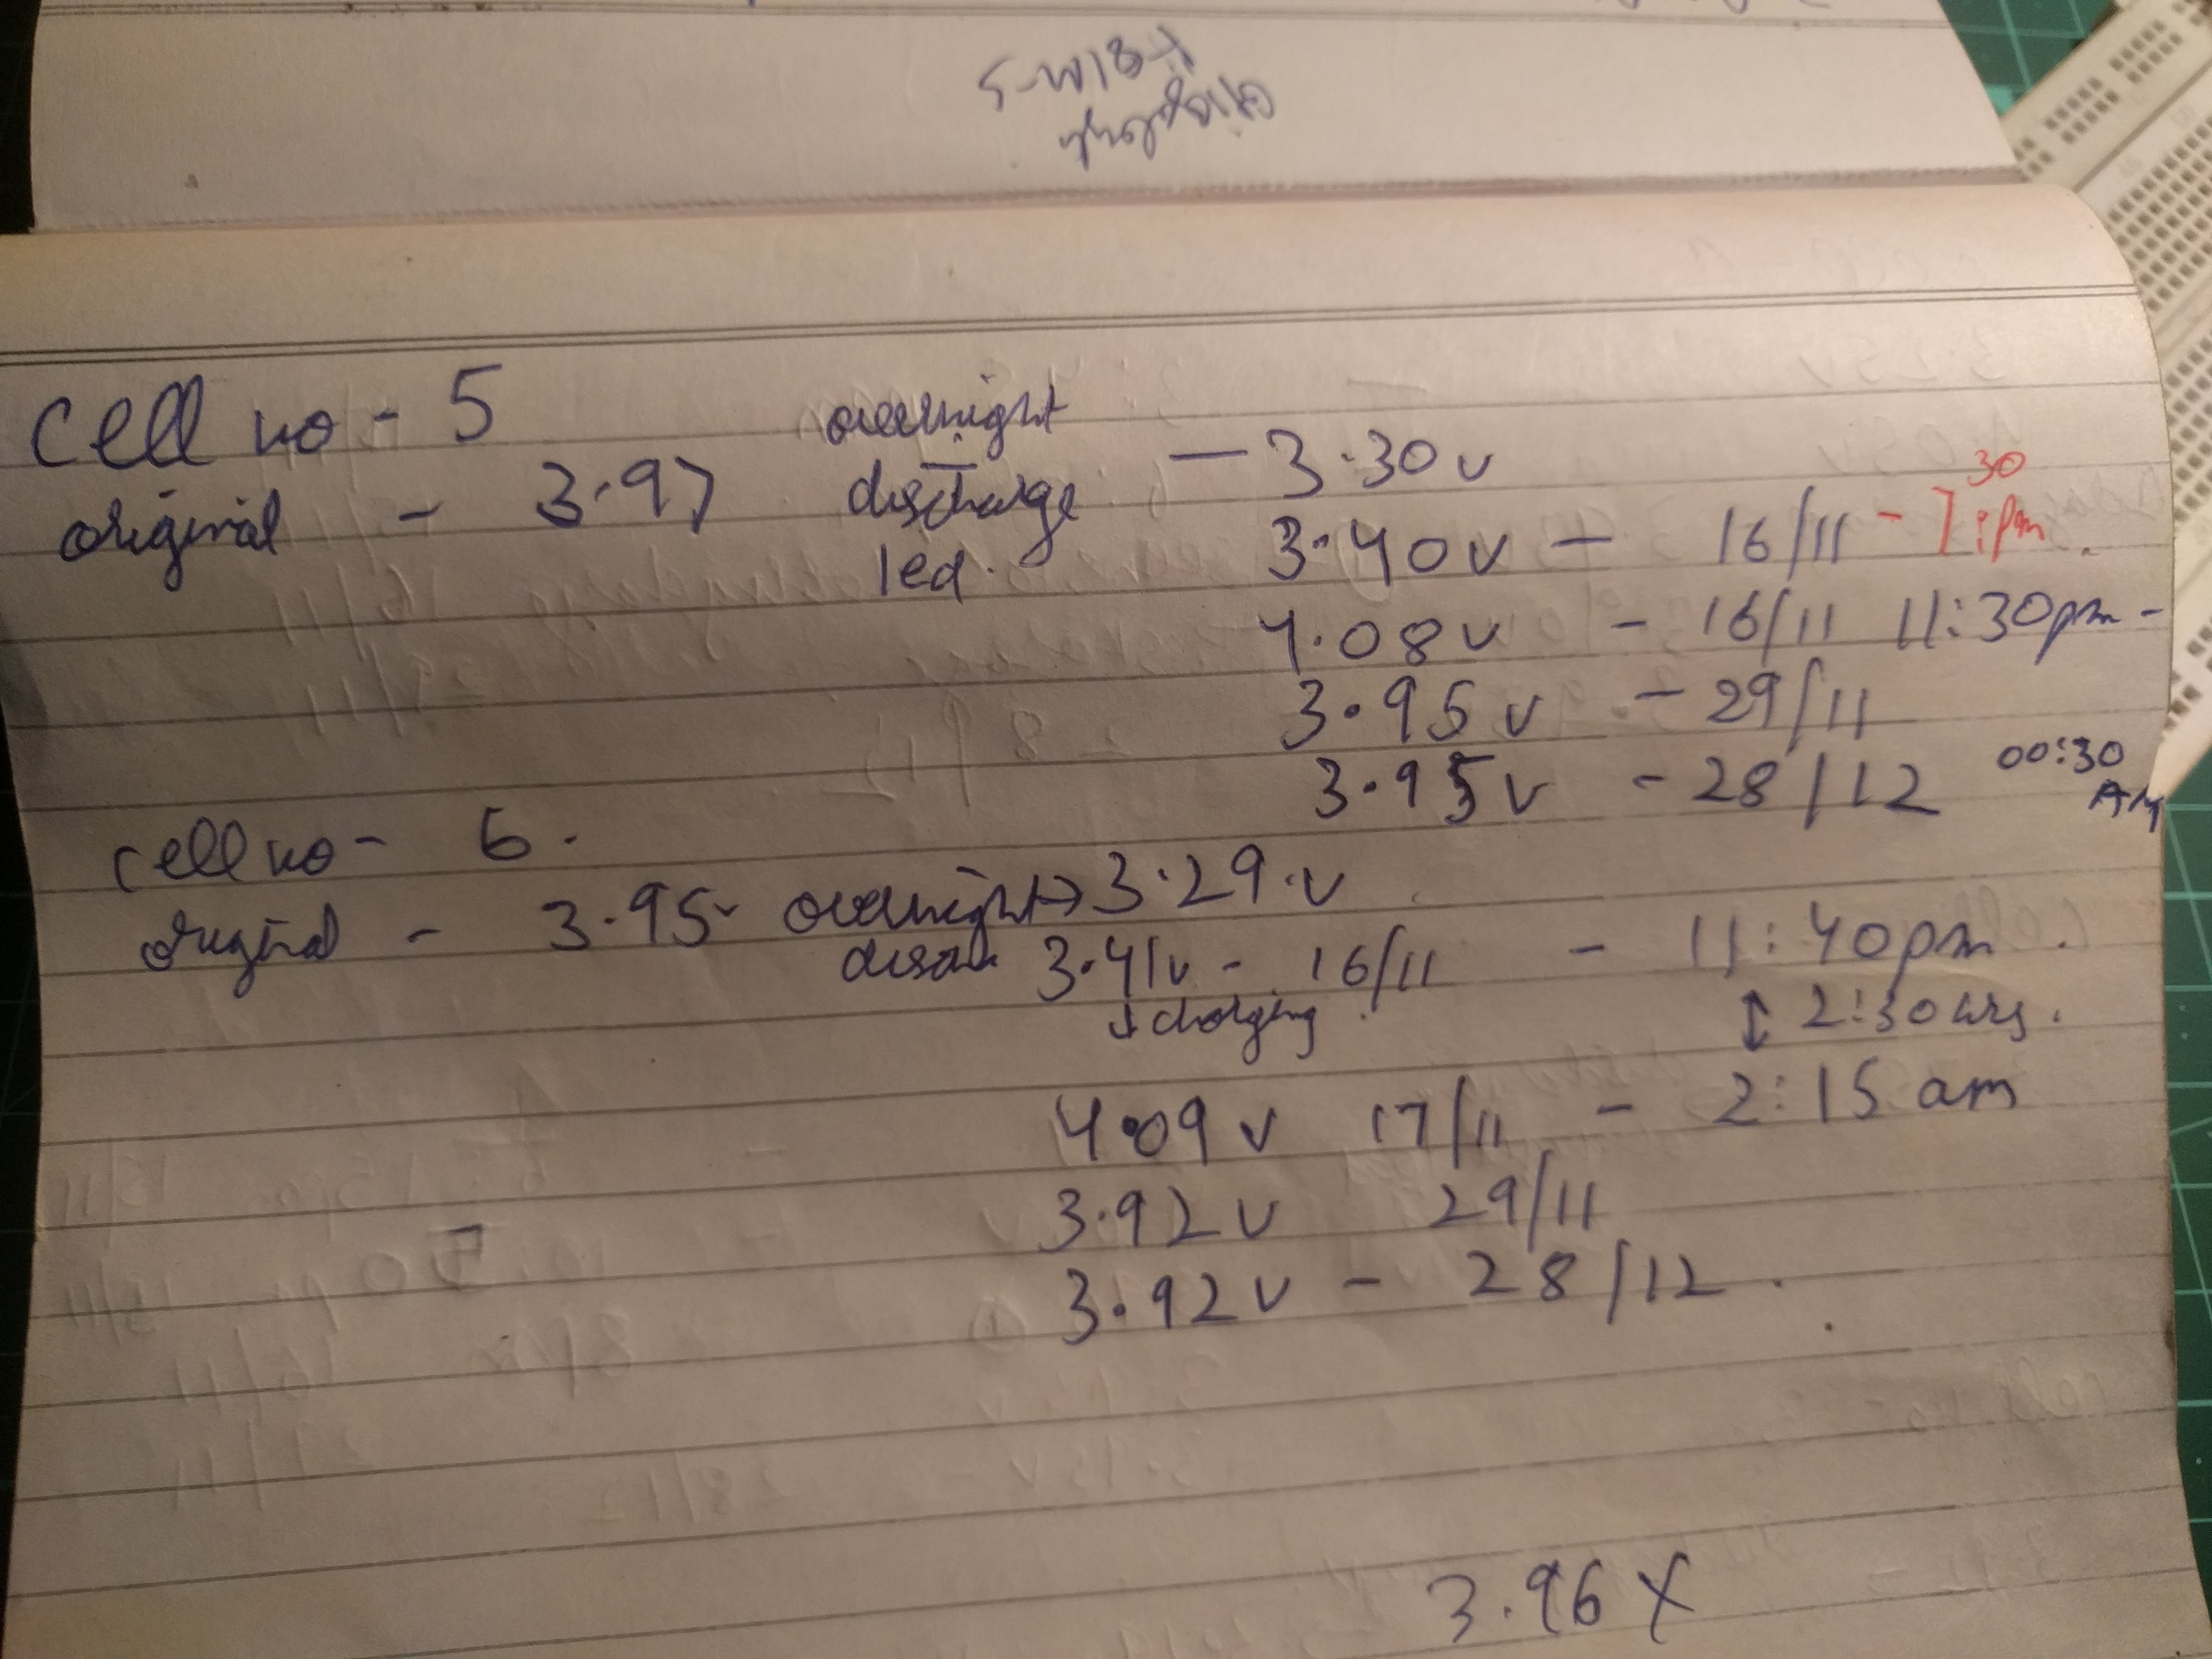 Cell no - 5
original - 3.97 overnight discharge led. - 3.30v
3.40v - 16/11 - 7:30pm
4.08v - 16/11 11:30pm -
3.95v - 29/11
3.95v - 28/12 00:30 AM
Cell no - 6.
original - 3.95v overnight → 3.29.v
3.41v - 16/11 - 11:40pm
↓ charging ↕ 2:30 hrs.
4.09v 17/11 - 2:15 am
3.92v 29/11
3.92v - 28/12.
3.96 X